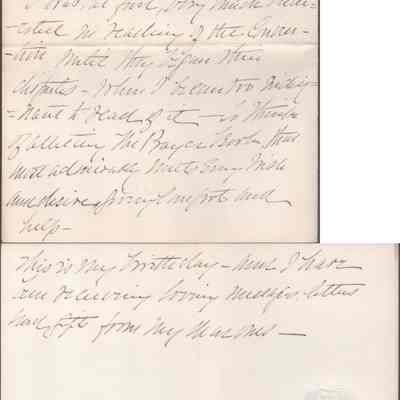 I was, at first, very much inter-
ested in reading of the Conven-
tion until they began their
disputes - when I became too indig-
nant to read of it - to think
of altering the Prayer Book, that
most admirably meets every wish
and desire giving comfort and
help -
This is my birthday - and I have
been receiving loving messages, letters
and gifts from my dear ones -